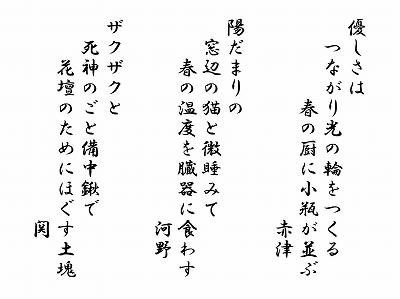 優しさは
つながり光の輪をつくる
春の厨に小瓶が並ぶ
赤津
陽だまりの
窓辺の猫と微睡みて
春の温度を臓器に食わす
河野
ザクザクと
死神のごと備中鍬で
花壇のためにほぐす土塊
関